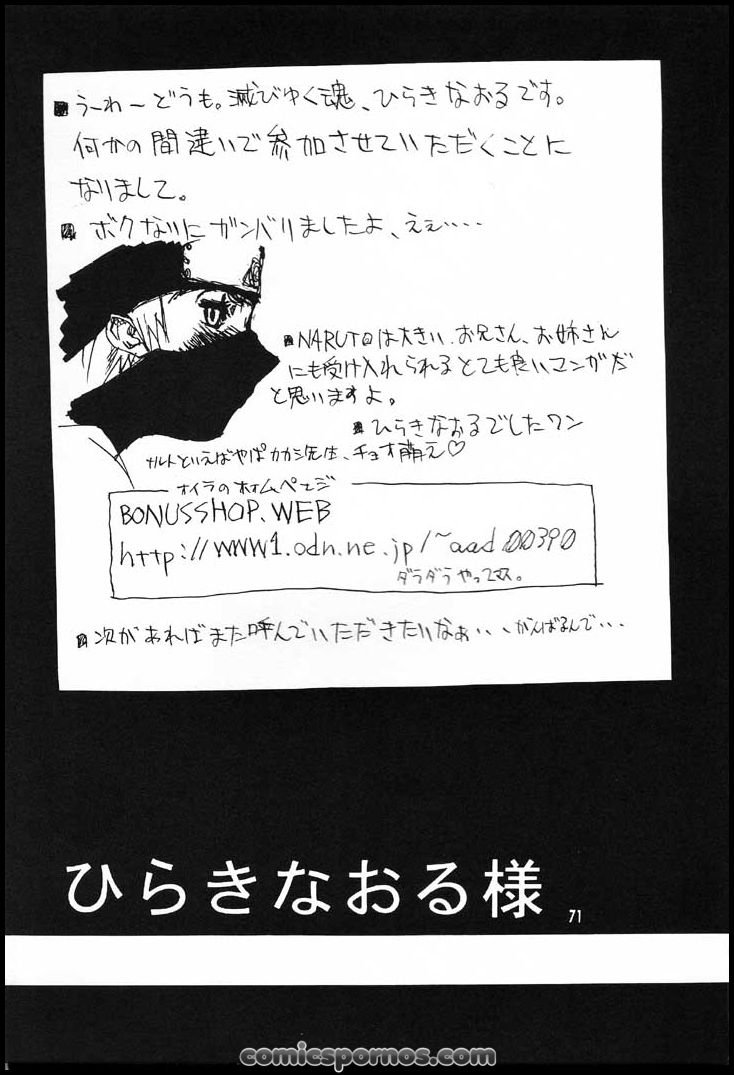 ■うーわーどうも。滅びゆく魂、ひらきなおるです。
何かの間違いで参加させていただくことに
なりまして。
■ボクなりにガンバリましたよ、ええ····
■NARUTOは大きいお兄さん、お姉さん
にも受け入れられるとても良いマンガだ
と思いますよ。
■ひらきなおるでしたワン
ナルトといえばやっぱカカシ先生、チョオ萌え♡
オイラのホームページ
BONUSSHOP.WEB
http://www1.odn.ne.jp/~aad00390
ダラダラやってます。
■次があればまた呼んでいただきたいなぁ··、がんばるんで···
ひらきなおる様
71
comicspornos.com